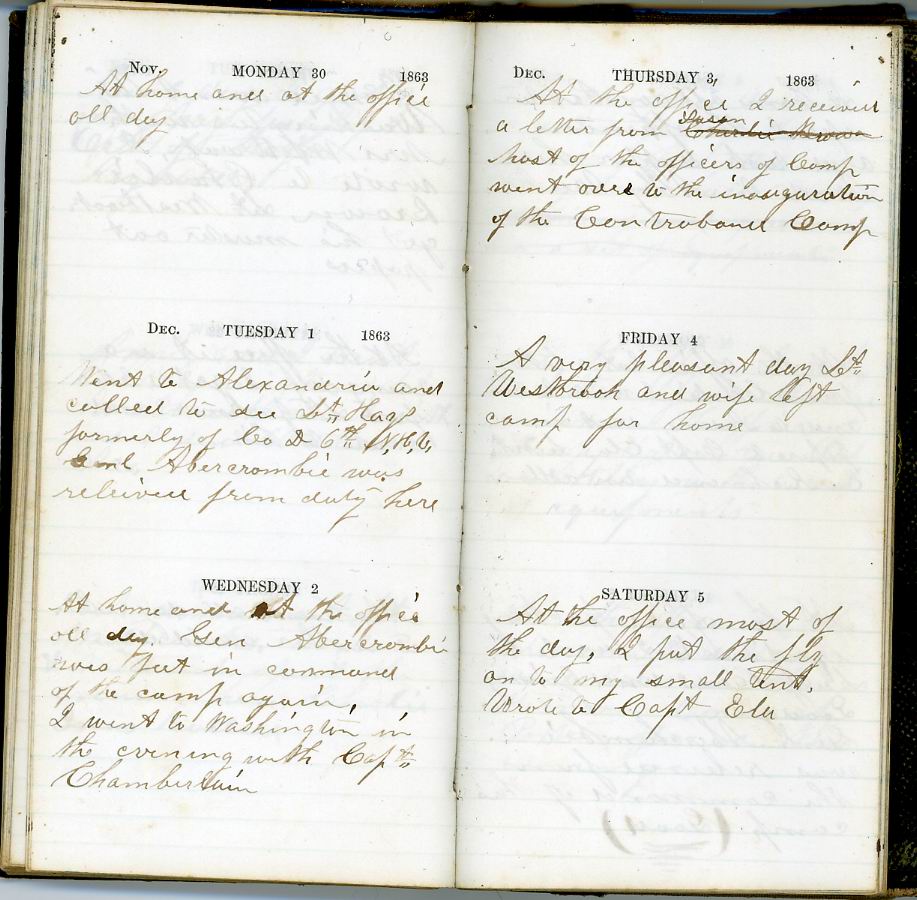 Nov. MONDAY 30 1863
At home and at the office
all day
DEC. TUESDAY 1 1863
Went to Alexandria and
called to see Lt. Hays
formerly of Co D 6th N.H.V.
Genl Abercrombie was
relieved from duty here
WEDNESDAY 2
At home and at the office
all day. Gen Abercrombie
was put in command
of the camp again,
I went to Washington in
the evening with Capt.
Chamberlain
DEC. THURSDAY 3, 1863
At the office I received
a letter from Susan Charlie Brown
Most of the officers of Camp
went over to the inauguration
of the Contraband Camp
FRIDAY 4
A very pleasant day Lt.
Westbrook and wife left
camp for home
SATURDAY 5
At the office most of
the day, I put the fly
on to my small tent.
Wrote to Capt Ela